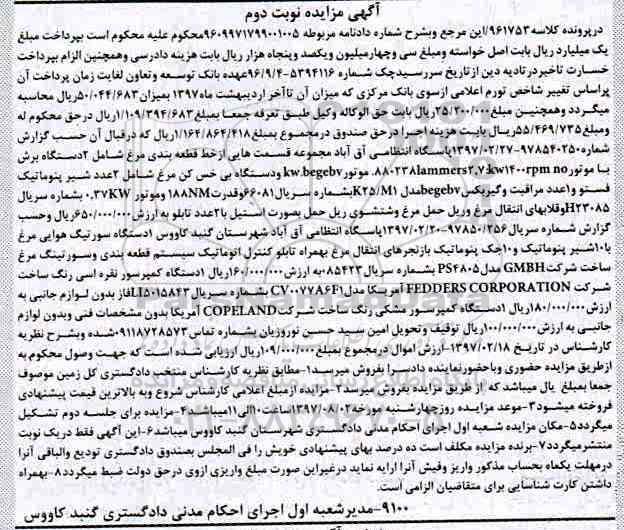 آگهی مزایده نوبت دوم
درپرونده کلاسه ۹۶۱۷۵۳/این مرجع وبشرح شماره دادنامه مربوطه ۹۶۰۹۹۷۱۷۹۹۰۰۱۰۰۵محکوم علیه محکوم است بپرداخت مبلغ
یک میلیارد ریال بابت اصل خواسته ومبلغ سی وچهارمیلیون ویکصد وپنجاه هزار ریال بابت هزینه دادرسی وهمچنین الزام بپرداخت
خسارت تاخیردرتادیه دین ازتاریخ سررسیدچک شماره ۵۳۹۴۱۱۶-۹۶/۹/۴عهده بانک توسعه وتعاون لغایت زمان پرداخت آن
براساس تغییر شاخص تورم اعلامی ازسوی بانک مرکزی که میزان آن تاآخر اردیبهشت ماه۱۳۹۷ بمیزان۵۰/۰۴۴/۶۸۳ریال محاسبه
میگردد وهمچنین مبلغ۲۵/۳۰۰/۰۰۰ریال بابت حق الوکاله وکیل طبق تعرفه جمعـا بمبلغ۱/۱۰۹/۳۹۴/۶۸۳ریال درحق محکوم له
ومبلغ۵۵/۴۶۹/۷۳۵ریـال بابت هزینه اجـرا درحق صندوق درمجموع بمبلغ۱/۱۶۴/۸۶۴/۴۱۸ریال که درقبال آن حسب گزارش
شماره۹۷۸۵۴۰۲۵۰-۱۳۹۷/۰۲/۲۷پاسگاه انتظامی آق آباد مجموعه قسمت هایی ازخط قطعه بندی مرغ شامل ۲دستگاه برش
با موتورlammers۲,۷:kw۱۴۰۰rpm no۸۸۰۲۳۸. موتورkw.begebv ودستگاه بی حس کن مرغ شامل ۲عدد شیر پنوماتیک
فستو و۱عدد مراقبت وگیربکسbegebvمدل K۲۵/M۱بشماره سریال۶۶۰۸۱وقدرت۱۸۸NMوموتور ۰.۳۷KW بشماره سریال
H۲۳۰۸۵وقلابهای انتقال مرغ وریل حمل مرغ وشتشوی ریل حمل بصورت استیل با۲عدد تابلو به ارزش۶۵۰/۰۰۰/۰۰۰ریال وحسب
گزارش شماره سریال۹۷۸۵۰/۲۵۶-۱۳۹۷/۰۲/۲۰پاسگاه انتظامی آق آباد شهرستان گنبد کاووس ۱دستگاه سورتیگ هوایی مرغ
با۱۰شیر پنوماتیک و۱۰جک پنوماتیک بازنجرهای انتقال مرغ بهمراه تابلو کنترل اتوماتیک سیستم قطعه بندی وسورتینگ مرغ
ساخت شرکتGMBH مدلPS۴۸۰۵ بشماره سریال۰۸۵۴۲۳به ارزش۱۶۰/۰۰۰/۰۰۰ریال ۱دستگاه کمپرسور نقره اسی رنگ ساخت
شرکت FEDDERS CORPORATION آمریکا مدلCV۰۰۷۷A۶F۱ بشماره سریالLI۵۰۱۵۸۴۳فاز بدون لوازم جانبی به
ارزش۱۸۰/۰۰۰/۰۰۰ریال ۱دستگاه کمپرسور مشکی رنگ ساخت شرکتCOPELANDآمریکا بدون مشخصات فنی وبدون لوازم
جانبی به ارزش۱۰۰/۰۰۰/۰۰۰ریال توقیف وتحویل امین سید حسین نوروزیان بشماره تماس۰۹۱۱۸۷۲۸۵۷۳شده وبشرح نظریه
کارشناس در تاریخ ۱۳۹۷/۰۲/۱۸-ارزش اموال درمجموع بمبلغ۱/۰۹۰/۰۰۰/۰۰۰ریال ارزیابی شده است که جهت وصول محکوم به
ازطریق مزایده حضوری وباحضورنماینده دادسرا بفروش میرسد۱-مطابق نظریه کارشناس منتخب دادگستری کل زمین موصوف
جمعا بمبلغ یال میباشد که از طریق مزایده بفروش میرسد۲-مزایده ازمبلغ اعلامی کارشناس شروع وبه بالاترین قیمت پیشنهادی
فروخته میشود۳-موعد مزایده روزچهارشنبه مورخه۱۳۹۷/۰۸/۰۲ساعت۱۰الی۱۱میباشد۴-مزایده برای جلسه دوم تشکیل
میگردد۵-مکان مزایده شعبه اول اجرای احکام مدنی دادگستری شهرستان گنبد کاووس میباشد۶-این آگهی فقط دریک نوبت
منتشرمیگردد۷-برنده مزایده مکلف است ده درصد بهای پیشنهادی خویش را فی المجلس بصندوق دادگستری تودیع والباقی آنرا
درمهلت یکماه بحساب مذکور واریز وفیش آنرا ارایه نماید درغیراین صورت مبلغ واریزی ازوی درحق دولت ضبط میگردد۸-بهمراه
داشتن کارت شناسایی برای متقاضیان الزامی است.
۹۱۰۰-مدیرشعبه اول اجرای احکام مدنی دادگستری گنبد کاووس